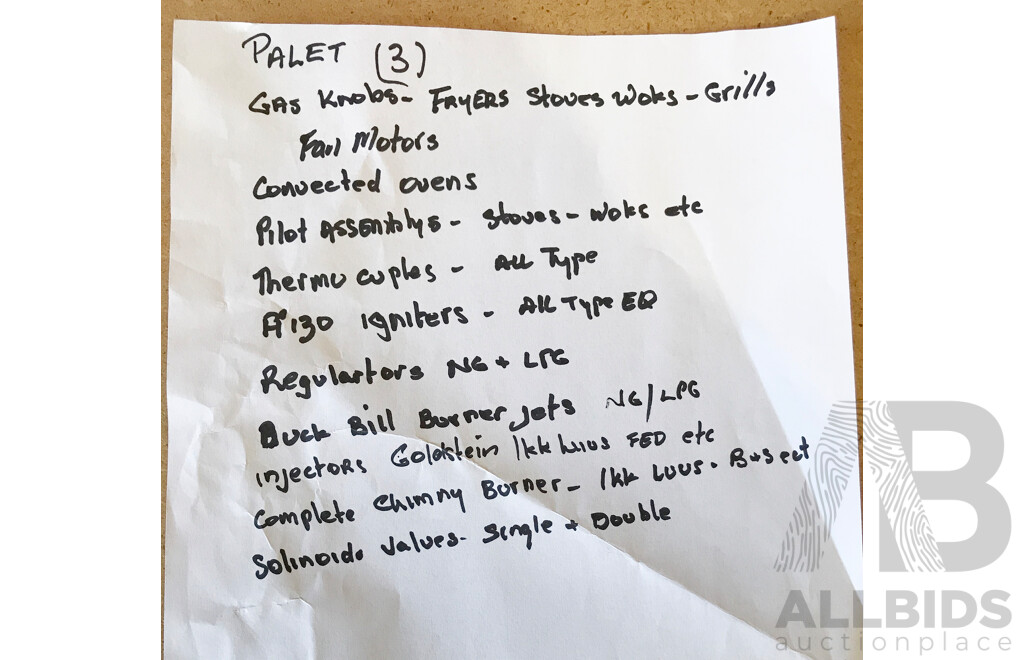 PALET (3)
GAS Knobs- FRYERS Stoves Woks - Grills
Fan Motors
Convected ovens
Pilot ASSEMblys - Stoves - Woks etc
Thermo cuples - ALL Type
Igniters - All Type EQ
Regulartors NG + LPG
Duck Bill Burner jets NG/LPG
injectors Goldstein FED etc
Complete Chimny Burner - B+S ect
Solinoids Valves- Single + Double
AB
ALLBIDS
auctionplace